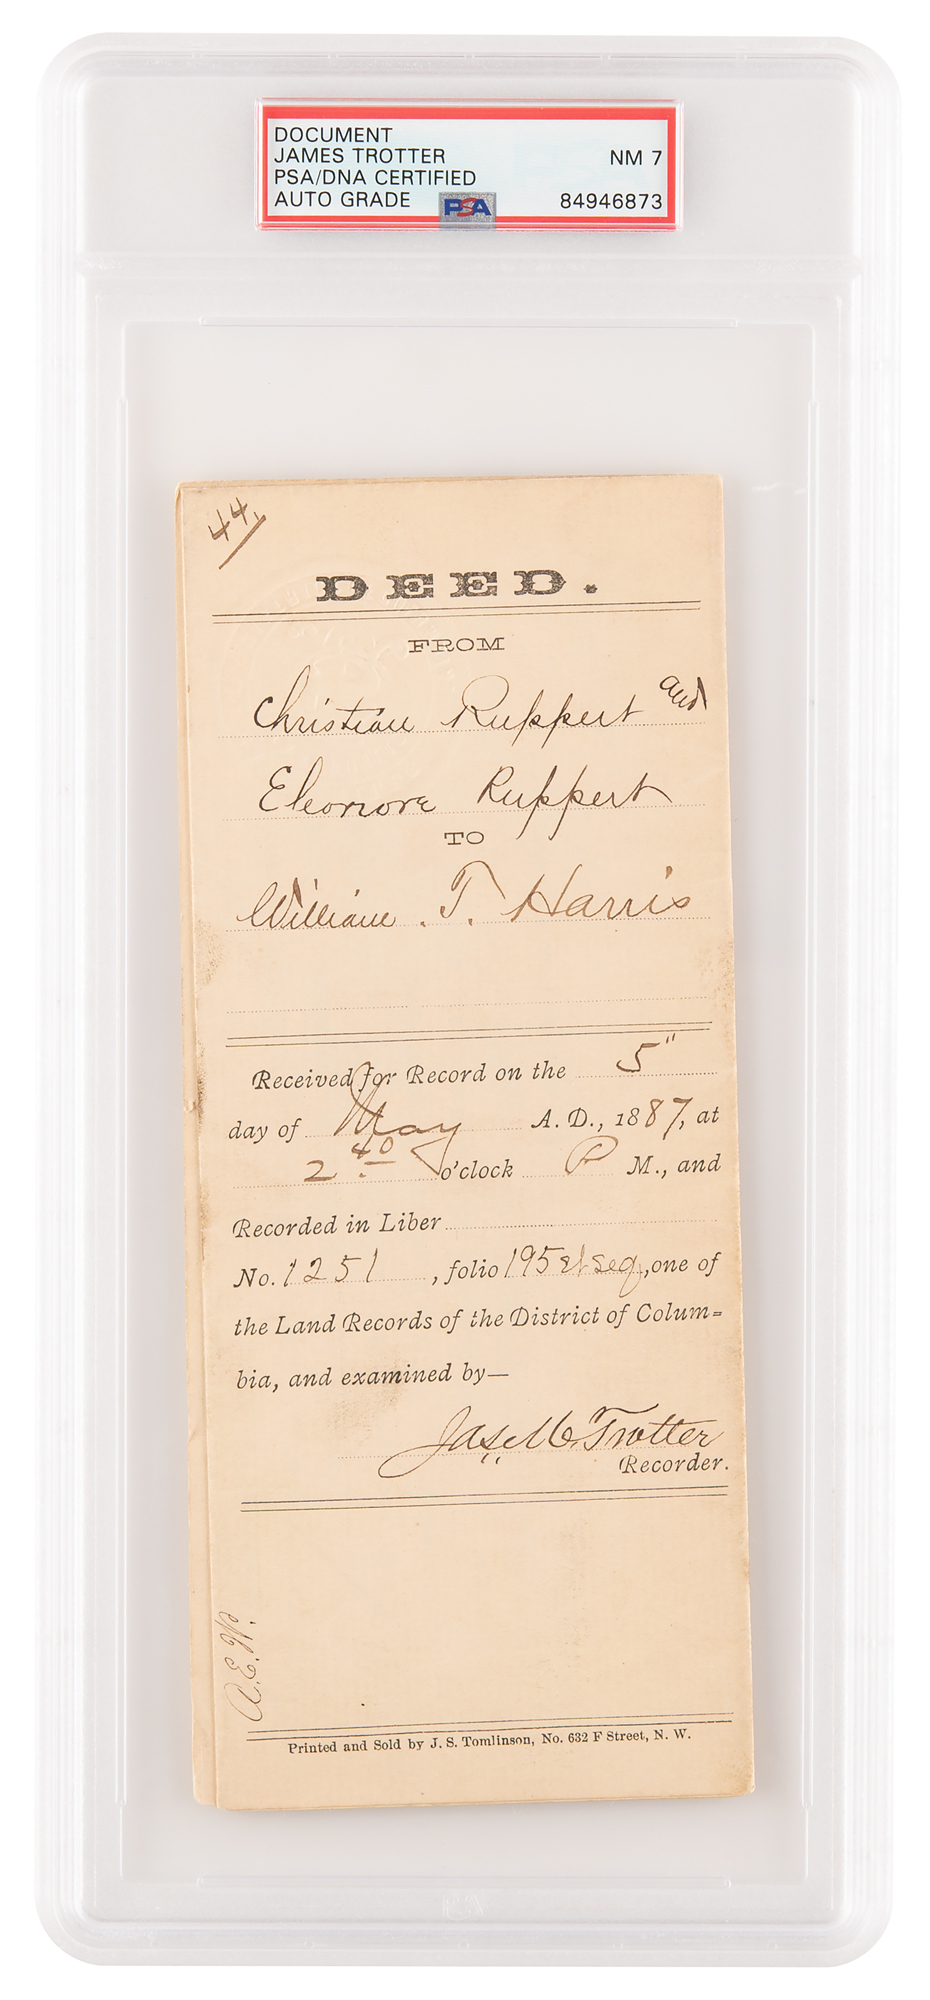 DOCUMENT
JAMES TROTTER NM 7
PSA/DNA CERTIFIED
AUTO GRADE PSA 84946873
44,
DEED.
FROM
Christian Ruppert and
Eleonore Ruppert
TO
William . T. Harris
Received for Record on the 5"
day of May A. D., 1887, at
2 40 o'clock P M., and
Recorded in Liber
No. 1251 , folio 195 et seq, one of
the Land Records of the District of Colum=
bia, and examined by—
Jas. M. Trotter
Recorder.
A.E.W.
Printed and Sold by J. S. Tomlinson, No. 632 F Street, N. W.
PSA